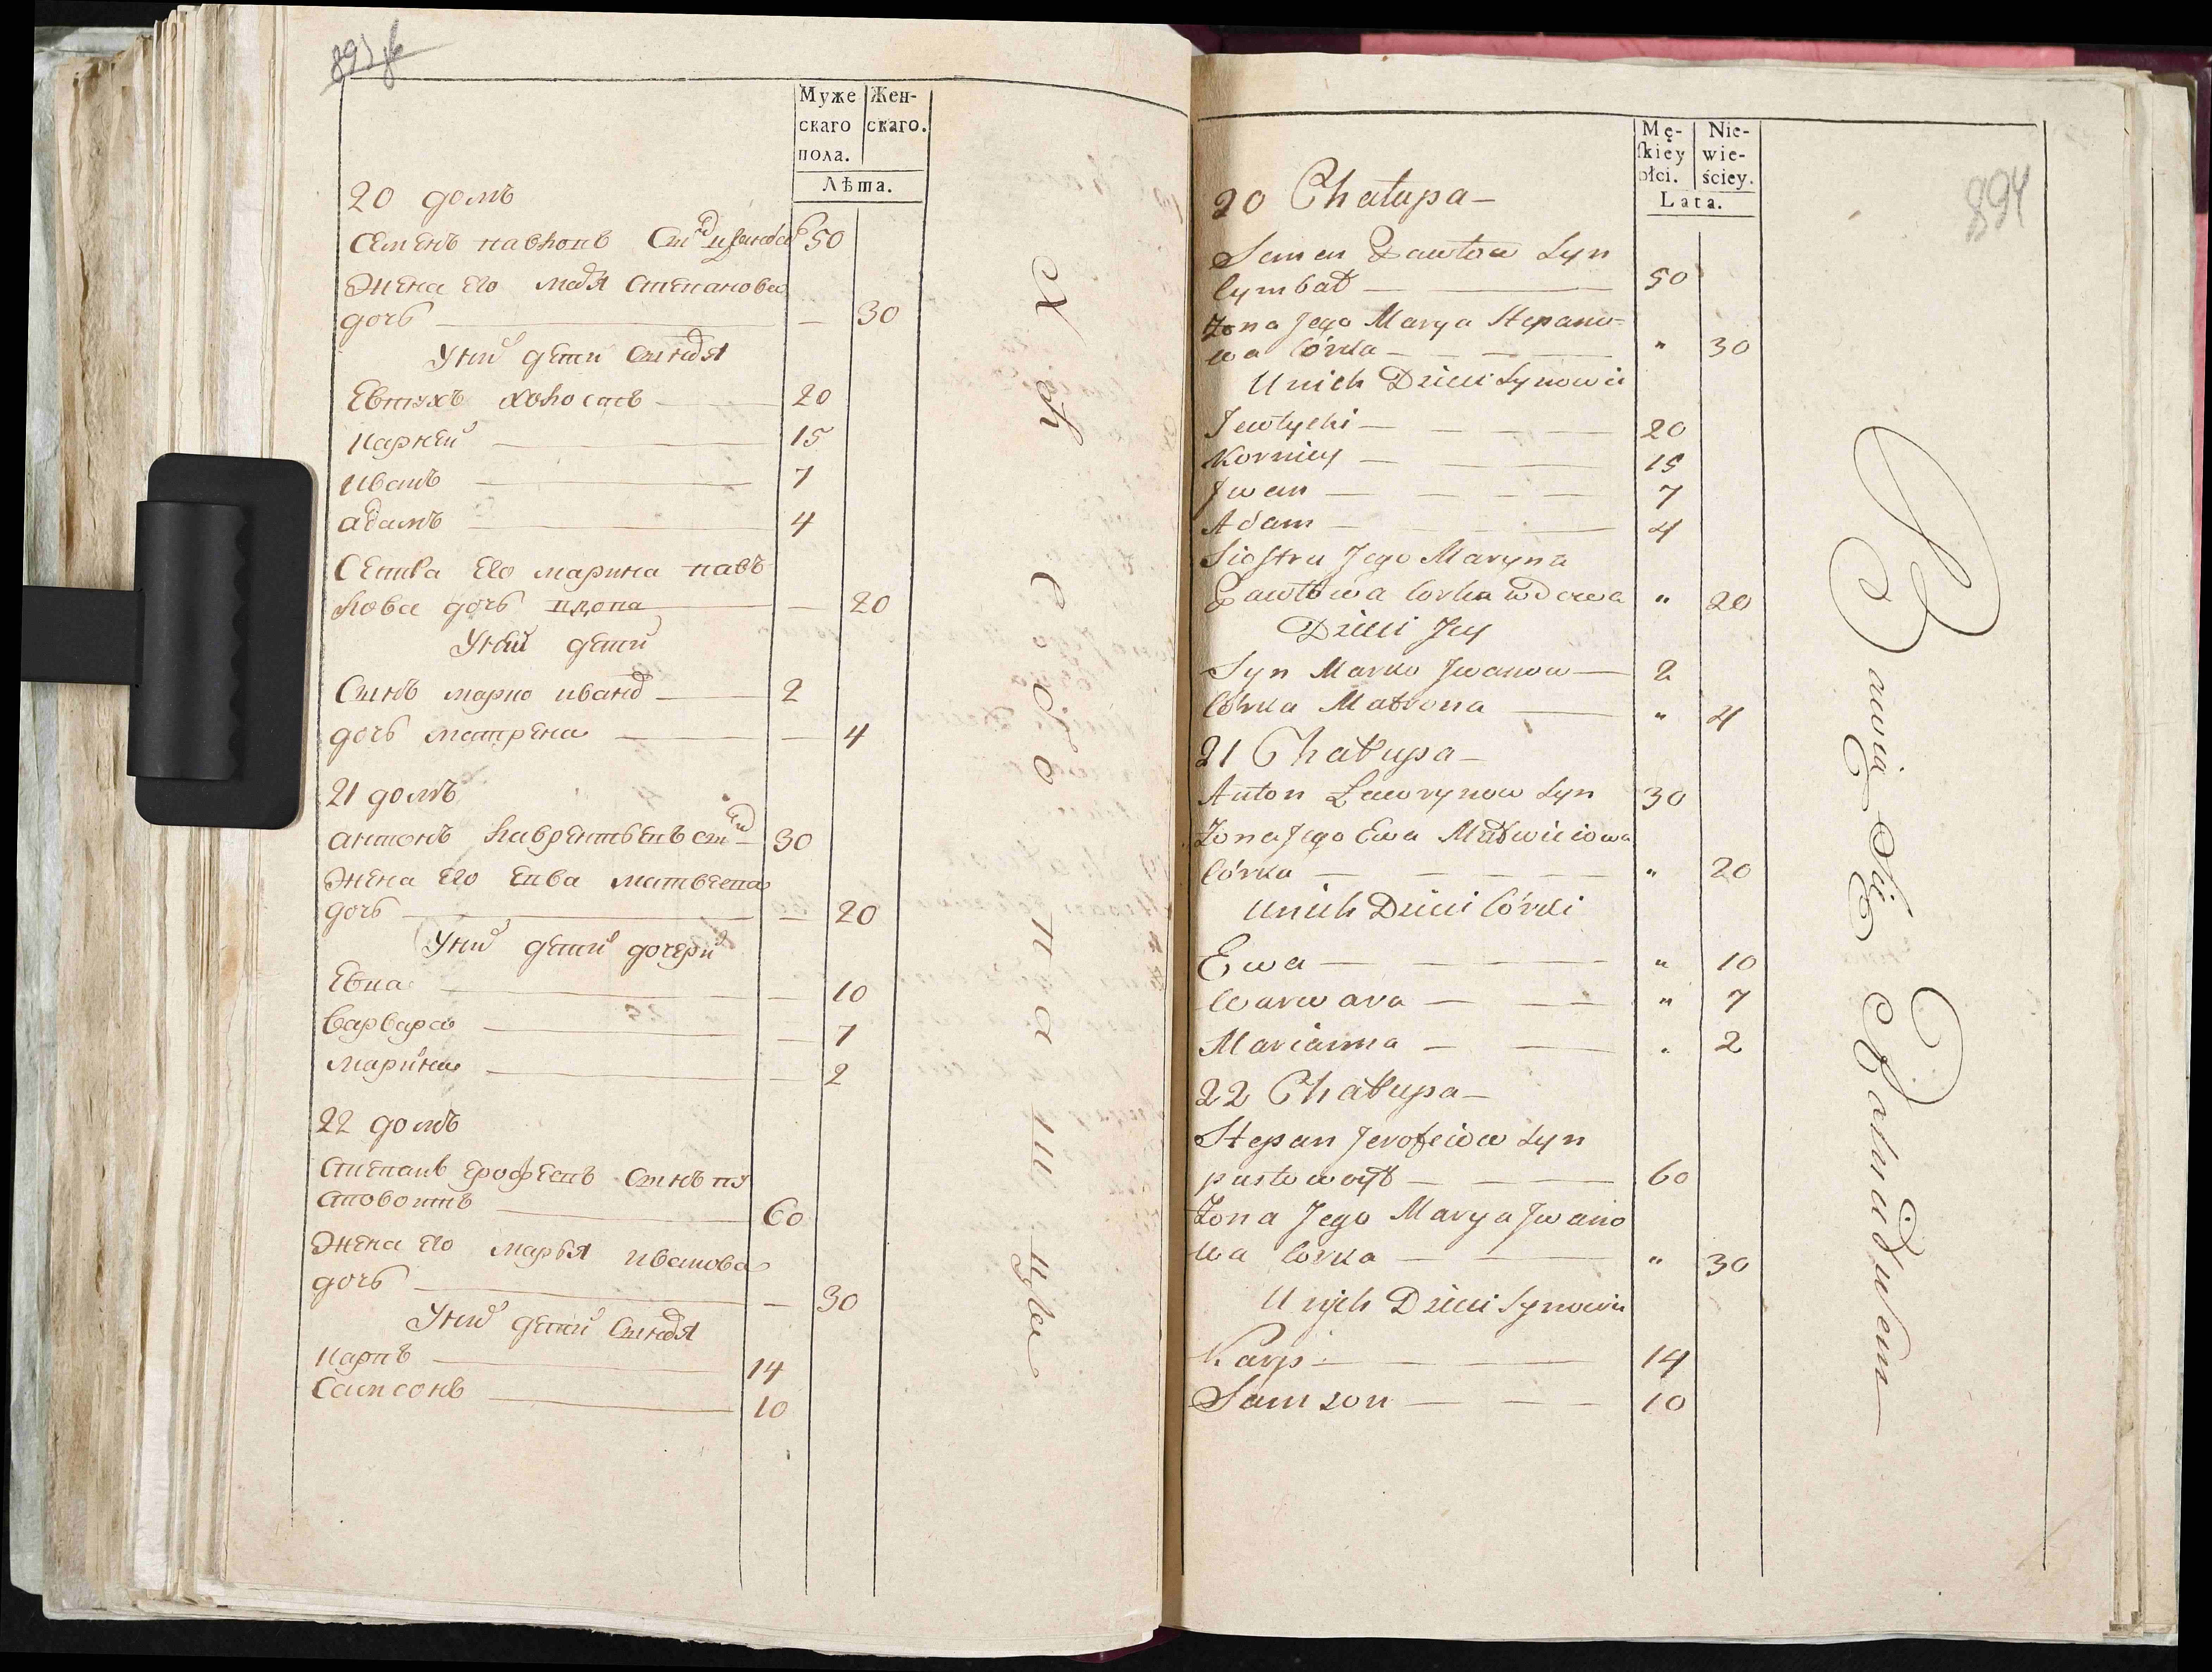 Муже
скаго
пола.
Жен-
скаго.
Лѣта.
20 домъ
Семенъ павловъ 50
жена его Степанова
дочь — 30
У них дети
Евтухъ 20
Карней 15
иванъ 7
адамъ 4
Сестра его марина пав
лова дочь вдова — 20
У ней дети
Синъ марко иванов 2
дочь матрена — 4
21 домъ
антонъ лаврентьевъ син 30
жена его евва матвеева
дочь — 20
У них дети дочери
Евва — 10
Варвара — 7
марина — 2
22 домъ
Степанъ ерофеевъ Синъ пу
стовоитъ 60
жена его марья иванова
дочь — 30
У них дети
Карпъ 14
Самсонъ 10
894
Mę-
skiey
płci.
Nie-
wie-
ściey.
Lata.
20 Chałupa —
Semen Pawłow Syn
Cymbał — 50
Żona Jego Marya Stepano=
wa Córka — " 30
U nich Dzieci Synowie
Jewtychi — 20
Korniey — 15
Jwan — 7
Adam — 4
Siostra Jego Maryna
Pawłowa Corka wdowa " 20
Dzieci Jey
Syn Marko Jwanow — 2
Córka Matrona — " 4
21 Chałupa —
Anton Ławrynow Syn 30
Żona Jego Ewa Matwieiowa
Córka — " 20
U nich Dzieci Córki
Ewa — " 10
Warwara — " 7
Marianna — " 2
22 Chałupa —
Stepan Jerofeiow Syn
pustowoyt — 60
Żona Jego Marya Jwano
wa Corka — " 30
U nich Dzieci Synowie
Karp — 14
Samson — 10